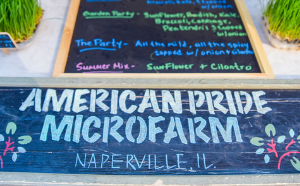 Garden Party - Sunflower, Radish, Kale,
Broccoli, Cabbage,
topped w/onion
The Party - All the mild, all the spicy
topped w/onion + cilantro
Summer Mix - Sunflower + Cilantro
AMERICAN PRIDE
MICROFARM
NAPERVILLE, IL.